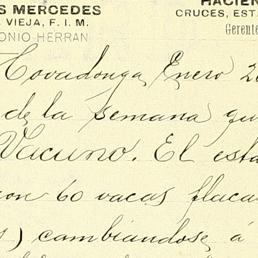 S MERCEDES
VIEJA, F. I. M.
ONIO HERRAN
HACIEN
CRUCES, EST
Gerente
Covadonga, Enero 2
de la semana qu
Vacuno. El esta
con 60 vacas flaca
s) cambiandose á